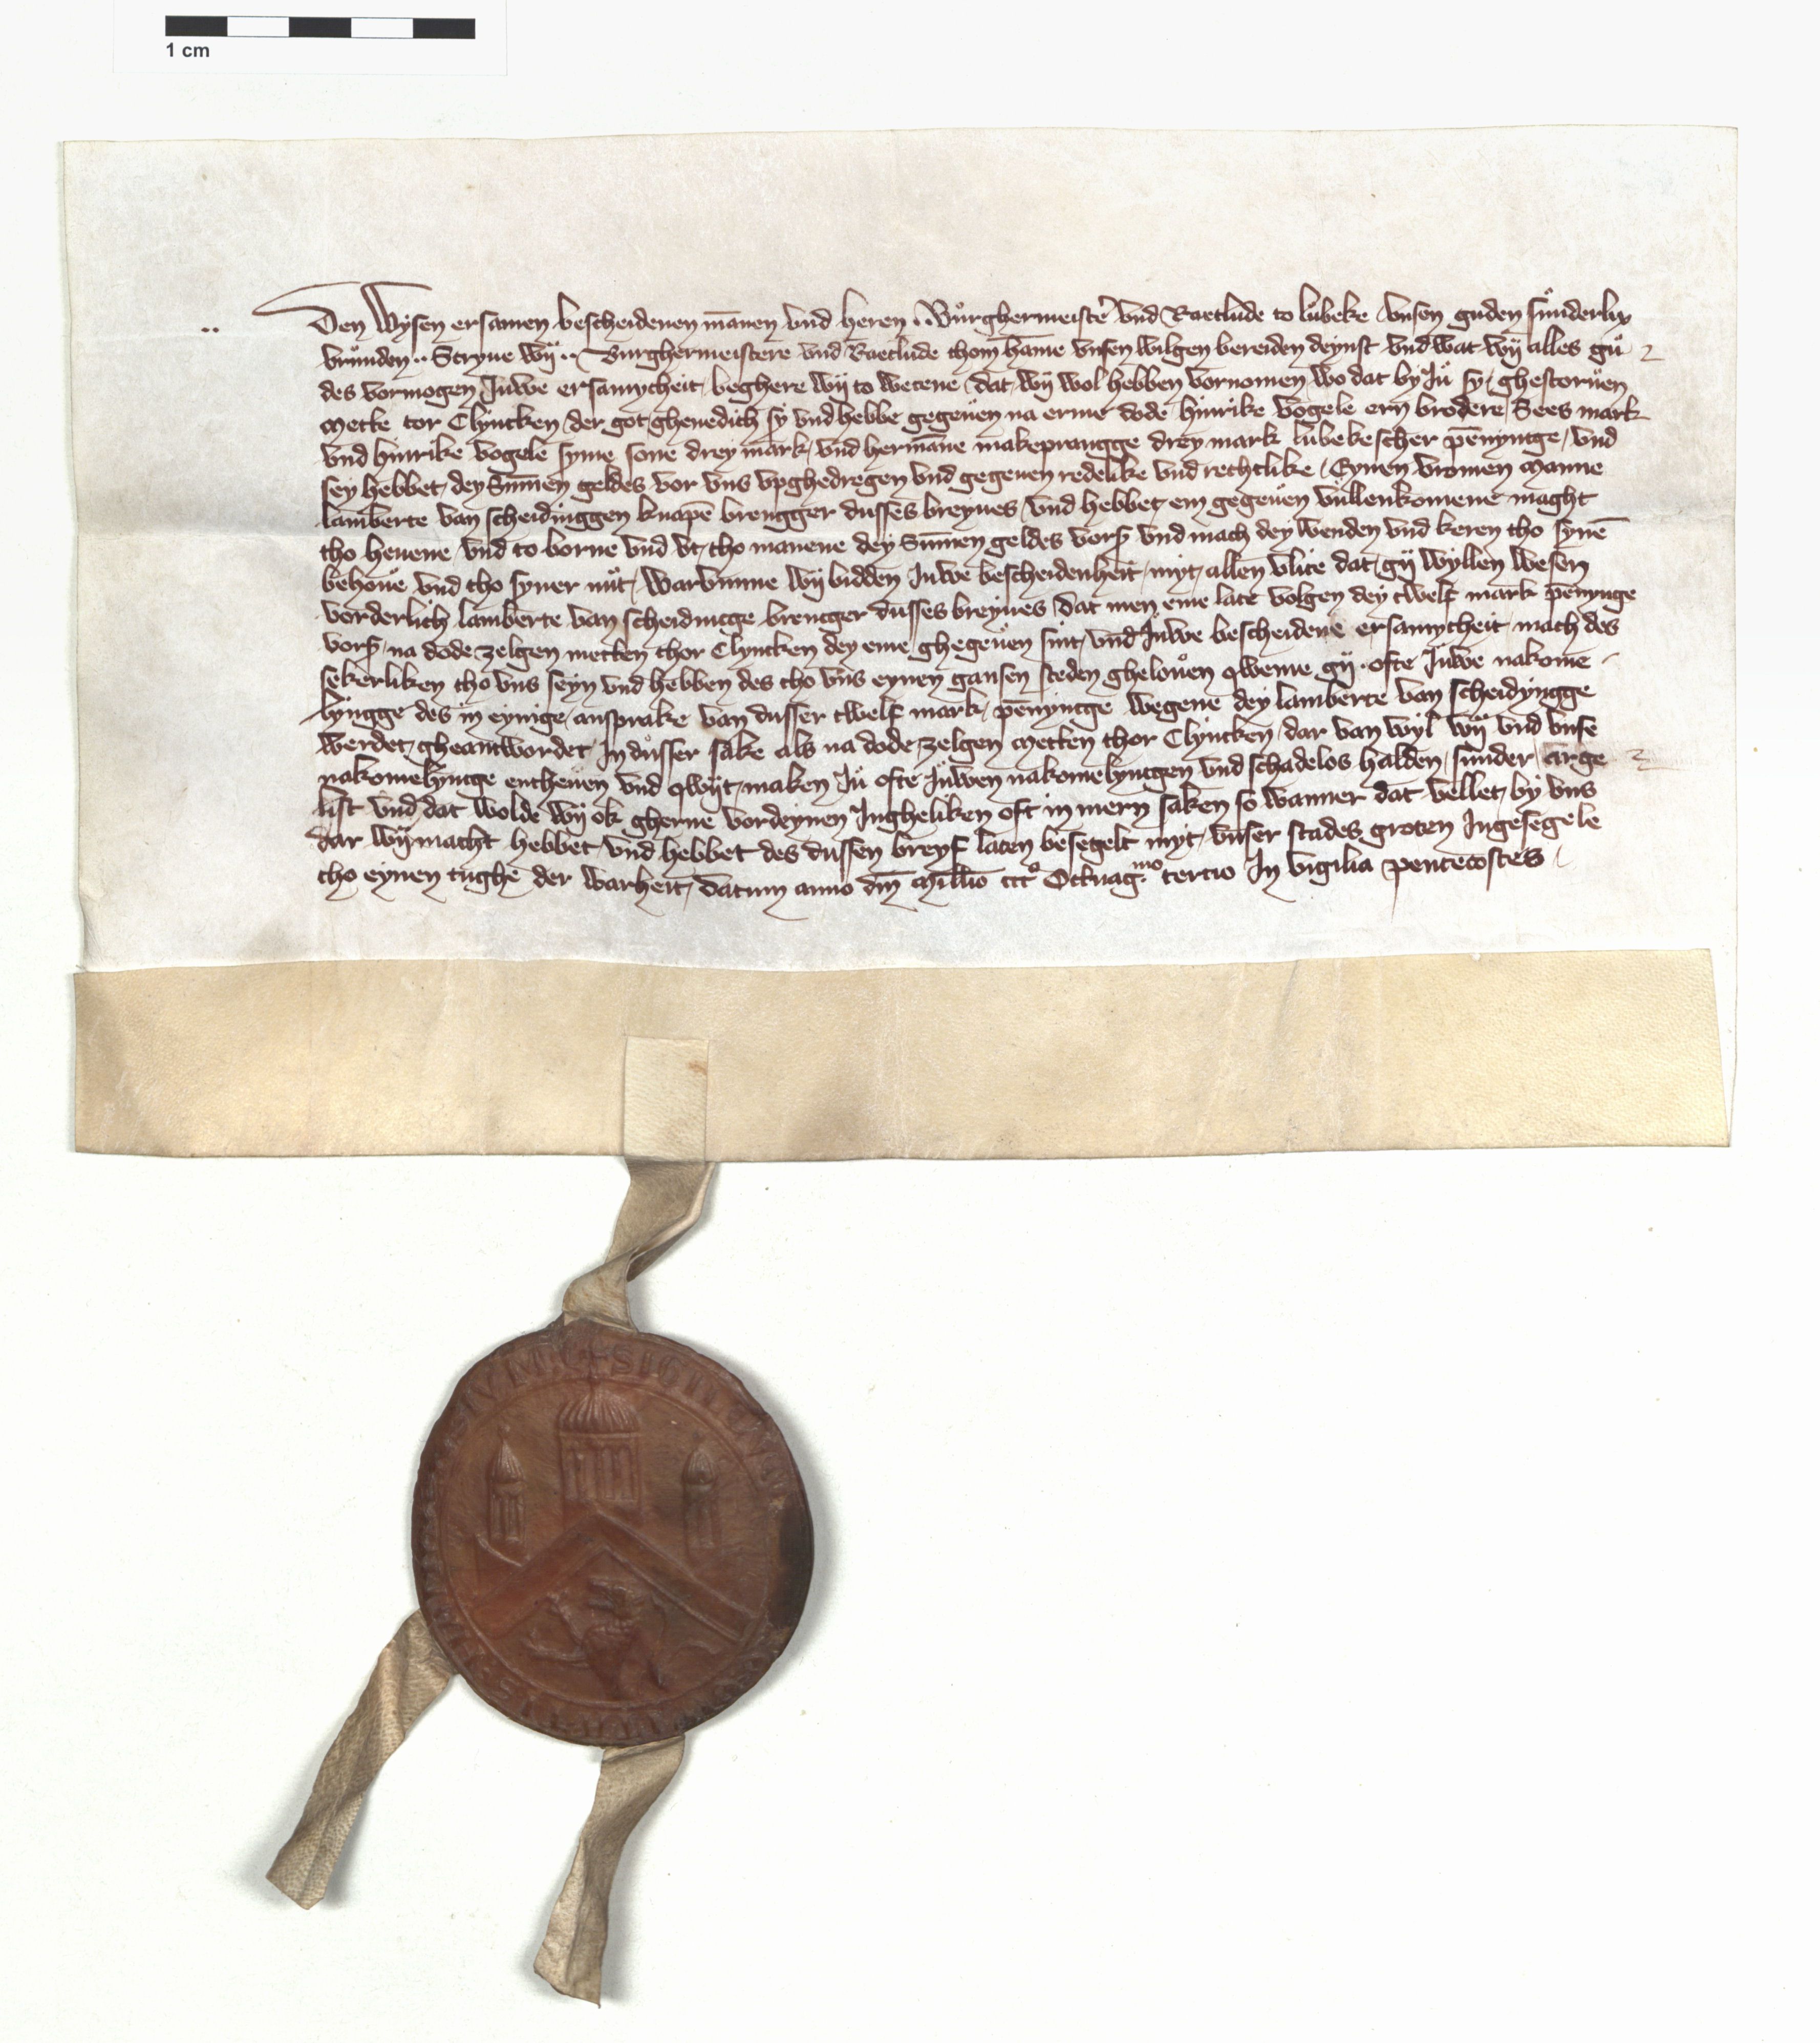 1 cm
Den Wysen ersamen bescheidenen mānen vnd heren .. Bůrghermeistẽ vnd Raetlude to lubeke vnsen guden sůnderlix
vrůnden .. Scryue Wy̋ .. Burghermeistere vnd Raetlude thom hāme vnsen wilgen bereiden deynst vnd wat wy̋ alles gů
des vormogen Juwe ersamycheit beghere wy̋ to wetene dat wy̋ wol hebben vornomen wo dat by Jů sy ghestoruen
Metke tor Clyncken der got ghenedich sy vnd hebbe gegeuen na erme dode hinrike vogele ern brodere Sees mark
vnd hinrike vogele syme sone drey mark vnd hermāne makeprangge drey mark lubekescher pēnyntge vnd
sey hebbet dey Sūmen geldes vor vns vpghedregen vnd gegeuen redelike vnd rechtlike Eynen vromen Manne
lamberte van scheidinggen knapē brengger dusses breyues vnd hebbet em gegeuen vullenkomene maght
tho heuene vnd to borne vnd vt tho manene dey Sūmen geldes vorß vnd mach dey wenden vnd keren tho synē
behoue vnd tho syner nůt Warvmme wy̋ bidden Juwe bescheidenheit myt allen vlite dat gy̋ wyllen wesen
vorderlich lamberte van scheidintge brentger dusses breyues dat men eme late volgen dey twelf mark pēnynge
vorß na dode zelgen metken thor Clyncken dey eme ghegeuen sint vnd Juwe bescheidene ersamycheit mach des
sekerliken tho vns seyn vnd hebben des tho vns eynen gansen steden ghelouen qweme gy̋ ofte Juwe nakome
lyngge des in eynige ansprake van dusser twelf mark pēnyntge wegene dey lamberte van scheidyngge
werdet gheantwordet in dusser sake als na dode zelgen Metken thor Clyncken dar van wyl wy̋ vnd vnse
nakomelyntge entheuen vnd qwy̋t maken Jů ofte Juwen nakomelyntgen vnd schadelos halden sunder arge
list vnd dat wolde wy̋ ok gherne vordeynen Jngheliken oft in mern saken so wanner dat vellet by vns
dar wy̋ macht hebbet vnd hebbet des dussen breyf laten besegelt myt vnser stades groten Jngesegele
tho eynen tughe der warheit Datum anno dm̄ Millīo cccº Octuag.mo tercio Jn vigilia pentecostes